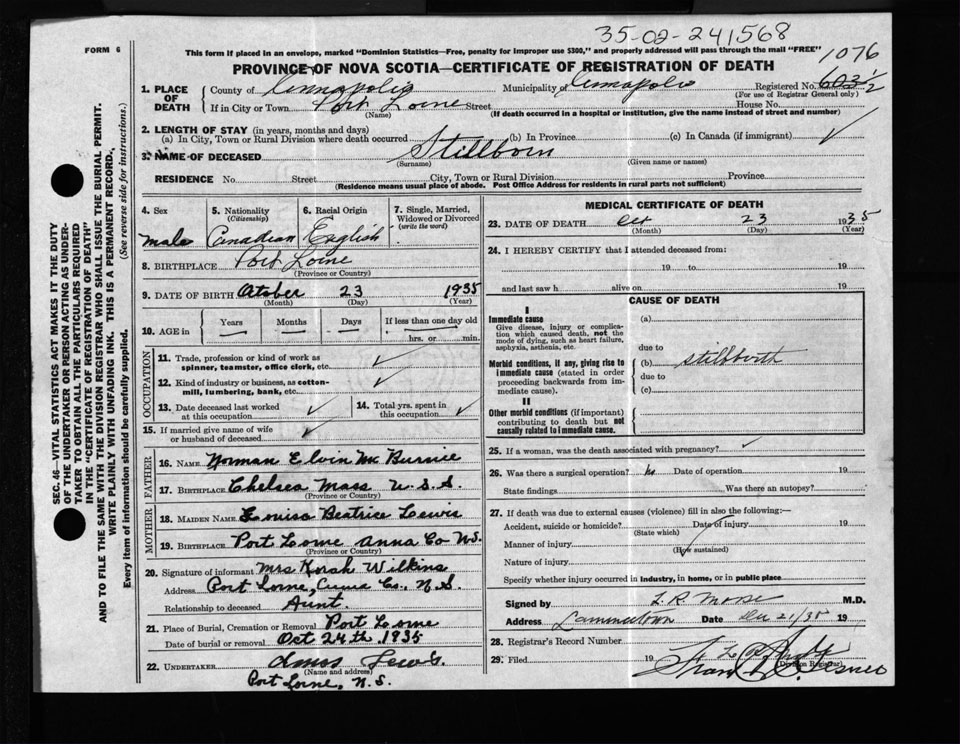 35-02-241568
FORM 6
This form if placed in an envelope, marked "Dominion Statistics—Free, penalty for improper use $300," and properly addressed will pass through the mail "FREE"
1076
PROVINCE OF NOVA SCOTIA—CERTIFICATE OF REGISTRATION OF DEATH
1. PLACE OF DEATH
County of Annapolis Municipality of Annapolis Registered No. 603½
(For use of Registrar General only)
If in City or Town Port Lorne Street House No.
(Name) (If death occurred in a hospital or institution, give the name instead of street and number)
2. LENGTH OF STAY (in years, months and days)
(a) In City, Town or Rural Division where death occurred (b) In Province (c) In Canada (if immigrant) ✓
3. NAME OF DECEASED Stillborn
(Surname) (Given name or names)
RESIDENCE No. Street City, Town or Rural Division Province
(Residence means usual place of abode. Post Office Address for residents in rural parts not sufficient)
4. Sex
male
5. Nationality
(Citizenship)
Canadian
6. Racial Origin
English
7. Single, Married, Widowed or Divorced
(write the word)
8. BIRTHPLACE Port Lorne
(Province or Country)
9. DATE OF BIRTH October 23 1935
(Month) (Day) (Year)
10. AGE in
Years Months Days If less than one day old
hrs. or min.
OCCUPATION
11. Trade, profession or kind of work as spinner, teamster, office clerk, etc. ✓
12. Kind of industry or business, as cotton-mill, lumbering, bank, etc. ✓
13. Date deceased last worked at this occupation ✓
14. Total yrs. spent in this occupation ✓
15. If married give name of wife or husband of deceased ✓
FATHER
16. NAME Norman Elvin Mc Burnie
17. BIRTHPLACE Chelsea Mass U.S.S.
(Province or Country)
MOTHER
18. MAIDEN NAME Louisa Beatrice Lewis
19. BIRTHPLACE Port Lorne Anna Co N.S.
(Province or Country)
20. Signature of informant Mrs Korah Wilkins
Address Port Lorne, Anna Co. N.S.
Relationship to deceased Aunt.
21. Place of Burial, Cremation or Removal Port Lorne
Date of burial or removal Oct 24th 1935
22. UNDERTAKER Amos Lewis.
(Name and address)
Port Lorne, N.S.
MEDICAL CERTIFICATE OF DEATH
23. DATE OF DEATH Oct 23 1935
(Month) (Day) (Year)
24. I HEREBY CERTIFY that I attended deceased from:
19 to 19
and last saw h alive on 19
CAUSE OF DEATH
I
Immediate cause
Give disease, injury or complication which caused death, not the mode of dying, such as heart failure, asphyxia, asthenia, etc.
(a)
due to
Morbid conditions, if any, giving rise to immediate cause (stated in order proceeding backwards from immediate cause).
(b) stillbirth
due to
(c)
II
Other morbid conditions (if important) contributing to death but not causally related to immediate cause.
25. If a woman, was the death associated with pregnancy? ✓
26. Was there a surgical operation? no Date of operation 19
State findings Was there an autopsy?
27. If death was due to external causes (violence) fill in also the following:—
Accident, suicide or homicide? Date of injury 19
(State which)
Manner of injury
(How sustained)
Nature of injury
Specify whether injury occurred in industry, in home, or in public place
Signed by L. R. Morse M.D.
Address Lawrencetown Date Dec 21/35 19
28. Registrar's Record Number
29. Filed 19
(Division Registrar)
SEC. 46—VITAL STATISTICS ACT MAKES IT THE DUTY
OF THE UNDERTAKER OR PERSON ACTING AS UNDER-
TAKER TO OBTAIN ALL THE PARTICULARS REQUIRED
IN THE "CERTIFICATE OF REGISTRATION OF DEATH"
AND TO FILE THE SAME WITH THE DIVISION REGISTRAR WHO SHALL ISSUE THE BURIAL PERMIT.
WRITE PLAINLY WITH UNFADING INK. THIS IS A PERMANENT RECORD.
Every item of information should be carefully supplied. (See reverse side for instructions.)